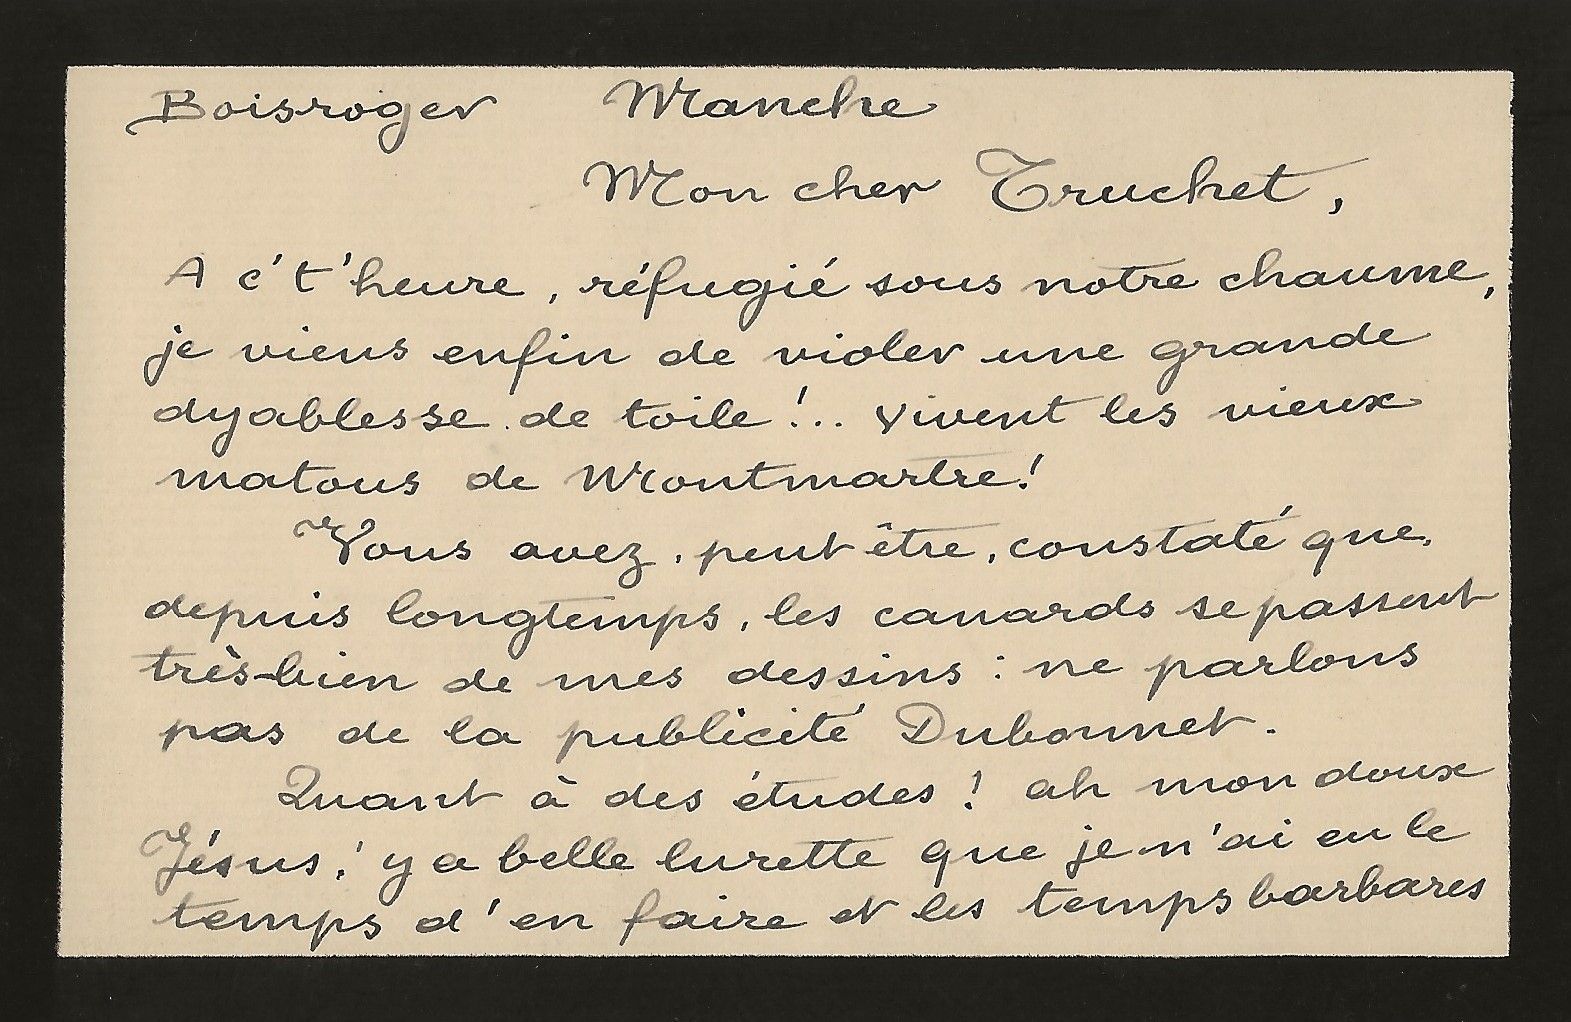 Boisroger Manche
Mon cher Truchet,
A c't'heure, réfugié sous notre chaume,
je viens enfin de violer une grande
dyablesse de toile !.. Vivent les vieux
matous de Montmartre!
Vous avez, peut être, constaté que,
depuis longtemps, les canards se passent
très-bien de mes dessins : ne parlons
pas de la publicité Dubonnet.
Quant à des études ! ah mon doux
Jésus ! y a belle lurette que je n'ai eu le
temps d'en faire et les temps barbares